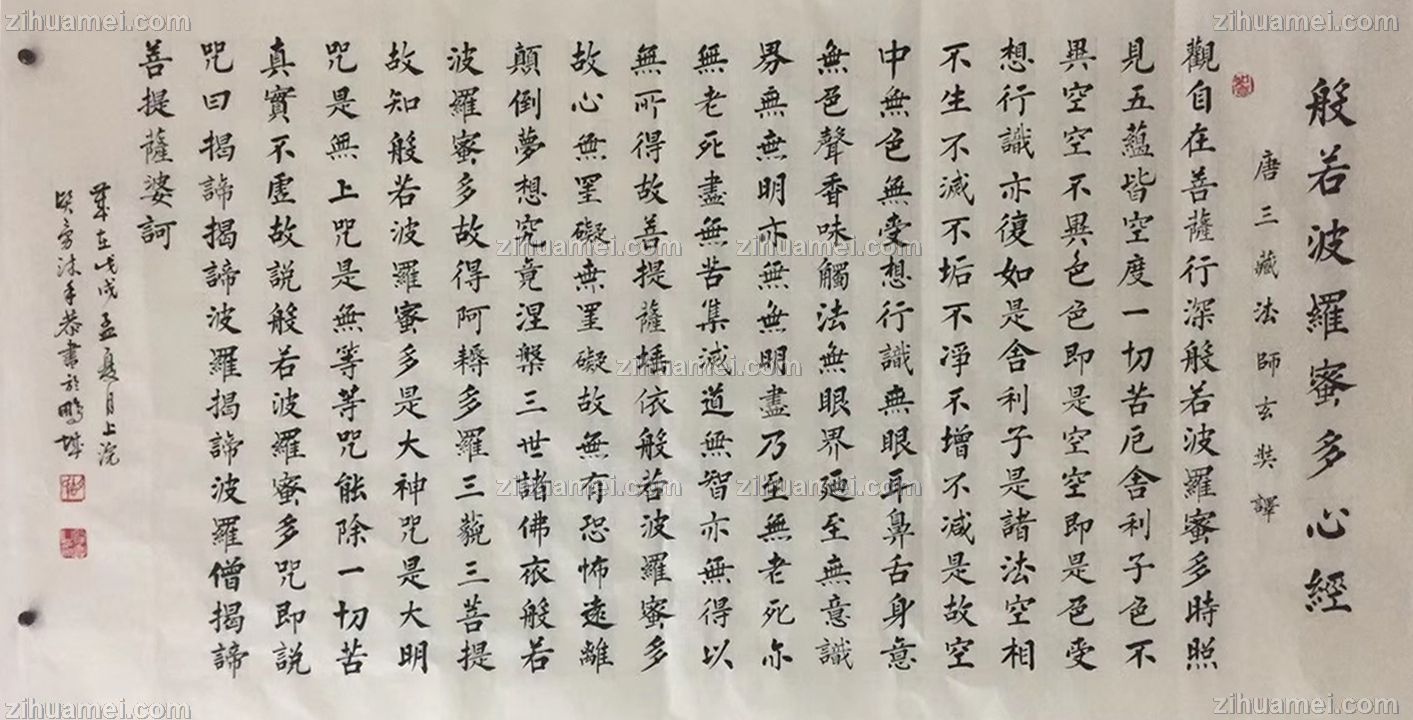 般若波羅蜜多心經
唐三藏法師玄奘譯
觀自在菩薩行深般若波羅蜜多時照
見五蘊皆空度一切苦厄舍利子色不
異空空不異色色即是空空即是色受
想行識亦復如是舍利子是諸法空相
不生不滅不垢不淨不增不減是故空
中無色無受想行識無眼耳鼻舌身意
無色聲香味觸法無眼界廼至無意識
界無無明亦無無明盡乃至無老死亦
無老死盡無苦集滅道無智亦無得以
無所得故菩提薩埵依般若波羅蜜多
故心無罣礙無罣礙故無有恐怖遠離
顛倒夢想究竟涅槃三世諸佛依般若
波羅蜜多故得阿耨多羅三藐三菩提
故知般若波羅蜜多是大神咒是大明
咒是無上咒是無等等咒能除一切苦
真實不虛故說般若波羅蜜多咒即說
咒曰揭諦揭諦波羅揭諦波羅僧揭諦
菩提薩婆訶
歲在戊戌孟夏月上浣
沐手恭書於鵬城
zihuamei.com
zihuamei.com
zihuamei.com
zihuamei.com
zihuamei.com
zihuamei.com
zihuamei.com
zihuamei.com